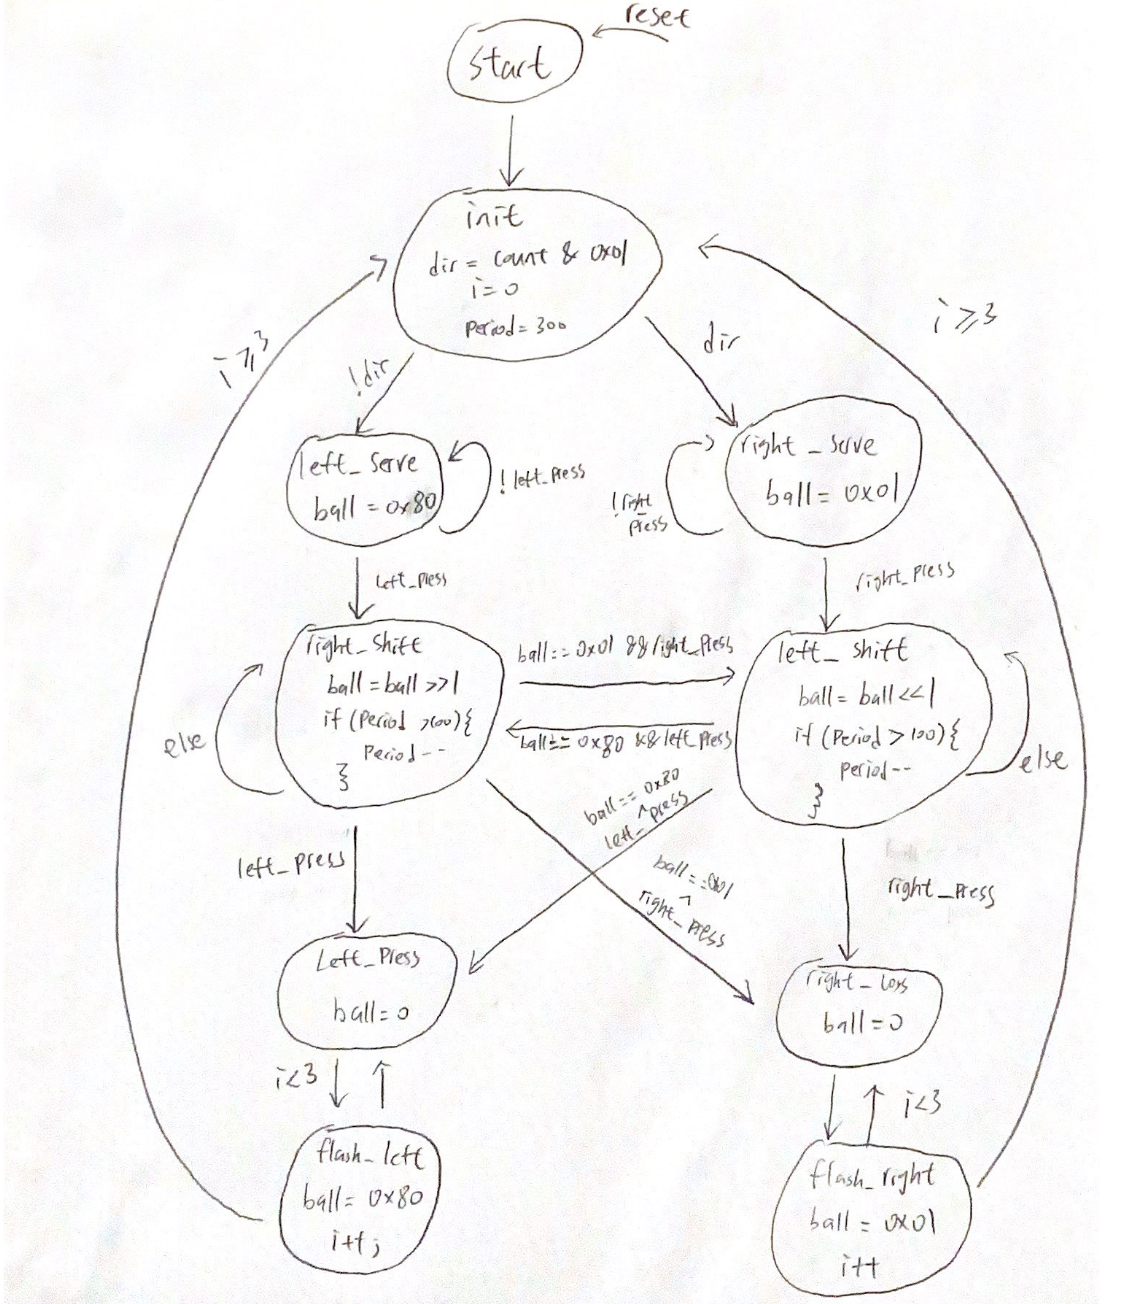 reset
start
init
dir = count & 0x01
i=0
Period=300
i≥3
i≥3
!dir
dir
left_serve
ball = 0x80
!left_press
right_serve
ball = 0x01
!right_
press
left_press
right_press
right_shift
ball = ball >>1
if (Period >100) {
Period--
}
else
ball == 0x01 && right_press
ball == 0x80 && left_press
left_shift
ball = ball <<1
if (Period > 100) {
Period--
}
else
ball == 0x80
^
left_press
ball == 0x01
^
right_press
left_press
right_press
Left_Press
ball = 0
right_Loss
ball = 0
i<3
i<3
flash_left
ball = 0x80
i++;
flash_right
ball = 0x01
i++